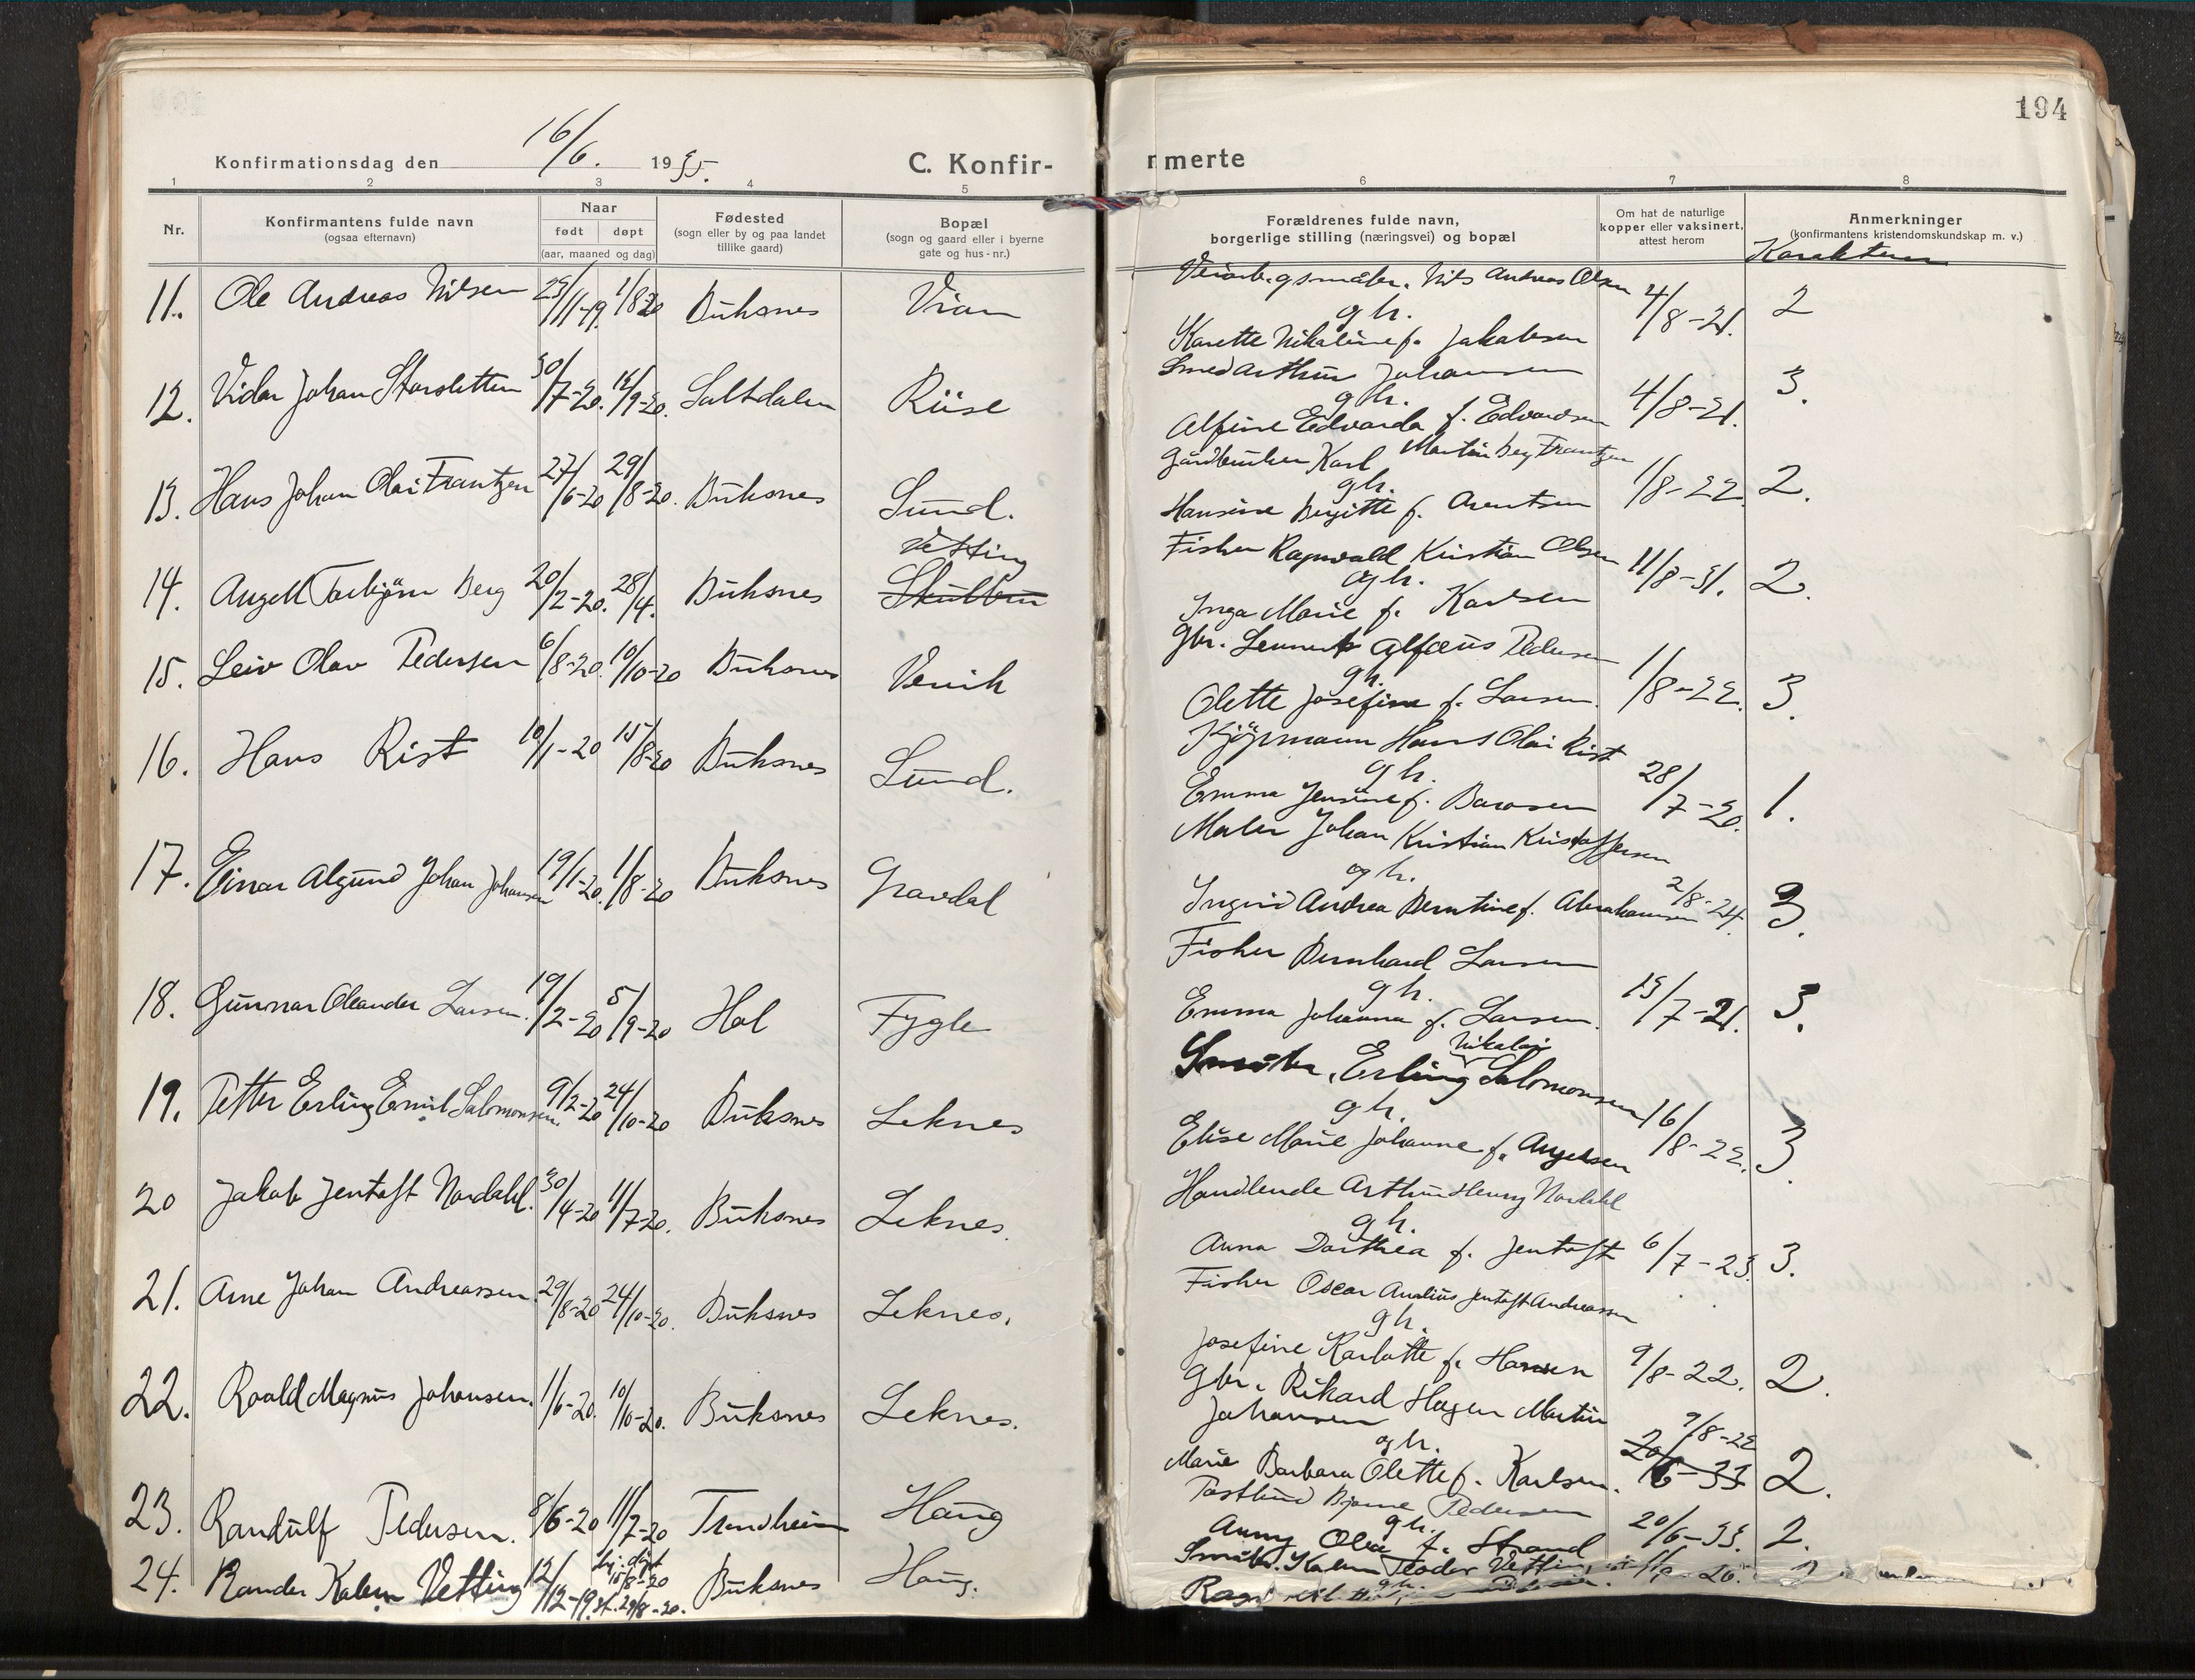 194
Konfirmationsdag den 16/6. 1935. C. Konfir-
merte
1 2 3 4 5 6 7 8
Nr.
Konfirmantens fulde navn
(ogsaa efternavn)
Naar
født døpt
(aar, maaned og dag)
Fødested
(sogn eller by og paa landet
tillike gaard)
Bopæl
(sogn og gaard eller i byerne
gate og hus-nr.)
Forældrenes fulde navn,
borgerlige stilling (næringsvei) og bopæl
Om hat de naturlige
kopper eller vaksinert,
attest herom
Anmerkninger
(konfirmantens kristendomskundskap m. v.)
Karakteren
11. Ole Andreas Nilsen 23/11-19. 1/8-20 Buksnes
Nils Andreas Olsen
g h.
Karette Nikoline f. Jakobsen
4/8-21. 2
12. Vidar Johan Storsletten 30/7-20. 12/9-20. Saltdalen Riise
Smed Arthur Johansen
g h.
Alfine Edvarda f. Edvardsen
4/8-21. 3.
13. Hans Johan Olai Frantzen 27/6-20 29/8-20. Buksnes Sund.
Gårdbruker Karl Martin Berg Frantzen
g h.
Hansine Birgitte f. Arentsen
1/8-22. 2.
14. Angell Torbjørn Berg 20/2-20. 28/4. Buksnes Vetting
Skulbru
Fisker Ragnvald Kristian Olsen
og h.
Inga Marie f. Karlsen
11/8-31. 2.
15. Leiv Olav Pedersen 6/8-20. 10/10-20 Buksnes Vervik
Gbr. Lennert Alfæus Pedersen
g h.
Olette Josefine f. Larsen.
1/8-22. 3.
16. Hans Rist 10/1-20 15/8-20 Buksnes Sund.
Kjøpmann Hans Olai Rist
g h.
Emma Jensine f.
28/7-20. 1.
17. Einar Algund Johan Johansen 19/1-20. 1/8-20 Buksnes Gravdal
Maler Johan Kristian Kristoffersen
og h.
Ingrid Andrea Berntine f. Abrahamsen
2/8-24. 3.
18. Gunnar Oleander Larsen. 19/2-20 5/9-20 Hol Fygle
Fisker Bernhard Larsen
g h.
Emma Johanna f. Larsen.
13/7-21. 3.
19. Petter Erling Emil Salomonsen. 9/2-20 24/10-20 Buksnes Leknes
Nikolai
Erling Salomonsen
g h.
Elise Marie Johanne f. Angelsen
16/8-22. 3.
20 Jakob Jentoft Nordahl. 30/4-20 11/7-20. Buksnes Leknes.
Handlende Arthur Henry Nordahl
g h.
Anna Dorthea f. Jentoft
6/7-23. 3.
21. Arne Johan Andreassen. 29/8-20 24/10-20. Buksnes Leknes.
Fisker Oscar Jentoft Andreassen
g h.
Josefine Karlotte f. Hansen
9/8-22. 2.
22. Roald Magnus Johansen. 1/6-20. 10/10-20. Buksnes Leknes.
Gbr. Rikard Hagen Martin
Johansen
og h.
Marie Barbara Olette f. Karlsen.
9/8-22
20/6-33 2.
23. Randulf Pedersen. 8/6-20 11/7-20 Trondheim Haug
Postbud Bjarne Pedersen
g h.
Anny Olea f. Strand
20/6-33. 2.
24. Rander Kalem Vetting 12/12-19 hj. døpt
15/8-20
st. 29/8-20. Buksnes Haug.
Kalem Teodor Vetting
g h.